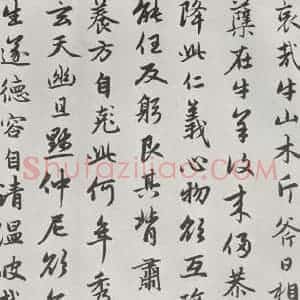 哀哉牛山木斤斧日相
蘖在牛羊又来侵恭
降此仁義心物欲互
能任反躬艮其背肅
養方自彪此何年秀
玄天幽且默仲尼欲
生遂德容自清温彼
Shufaziliao.com